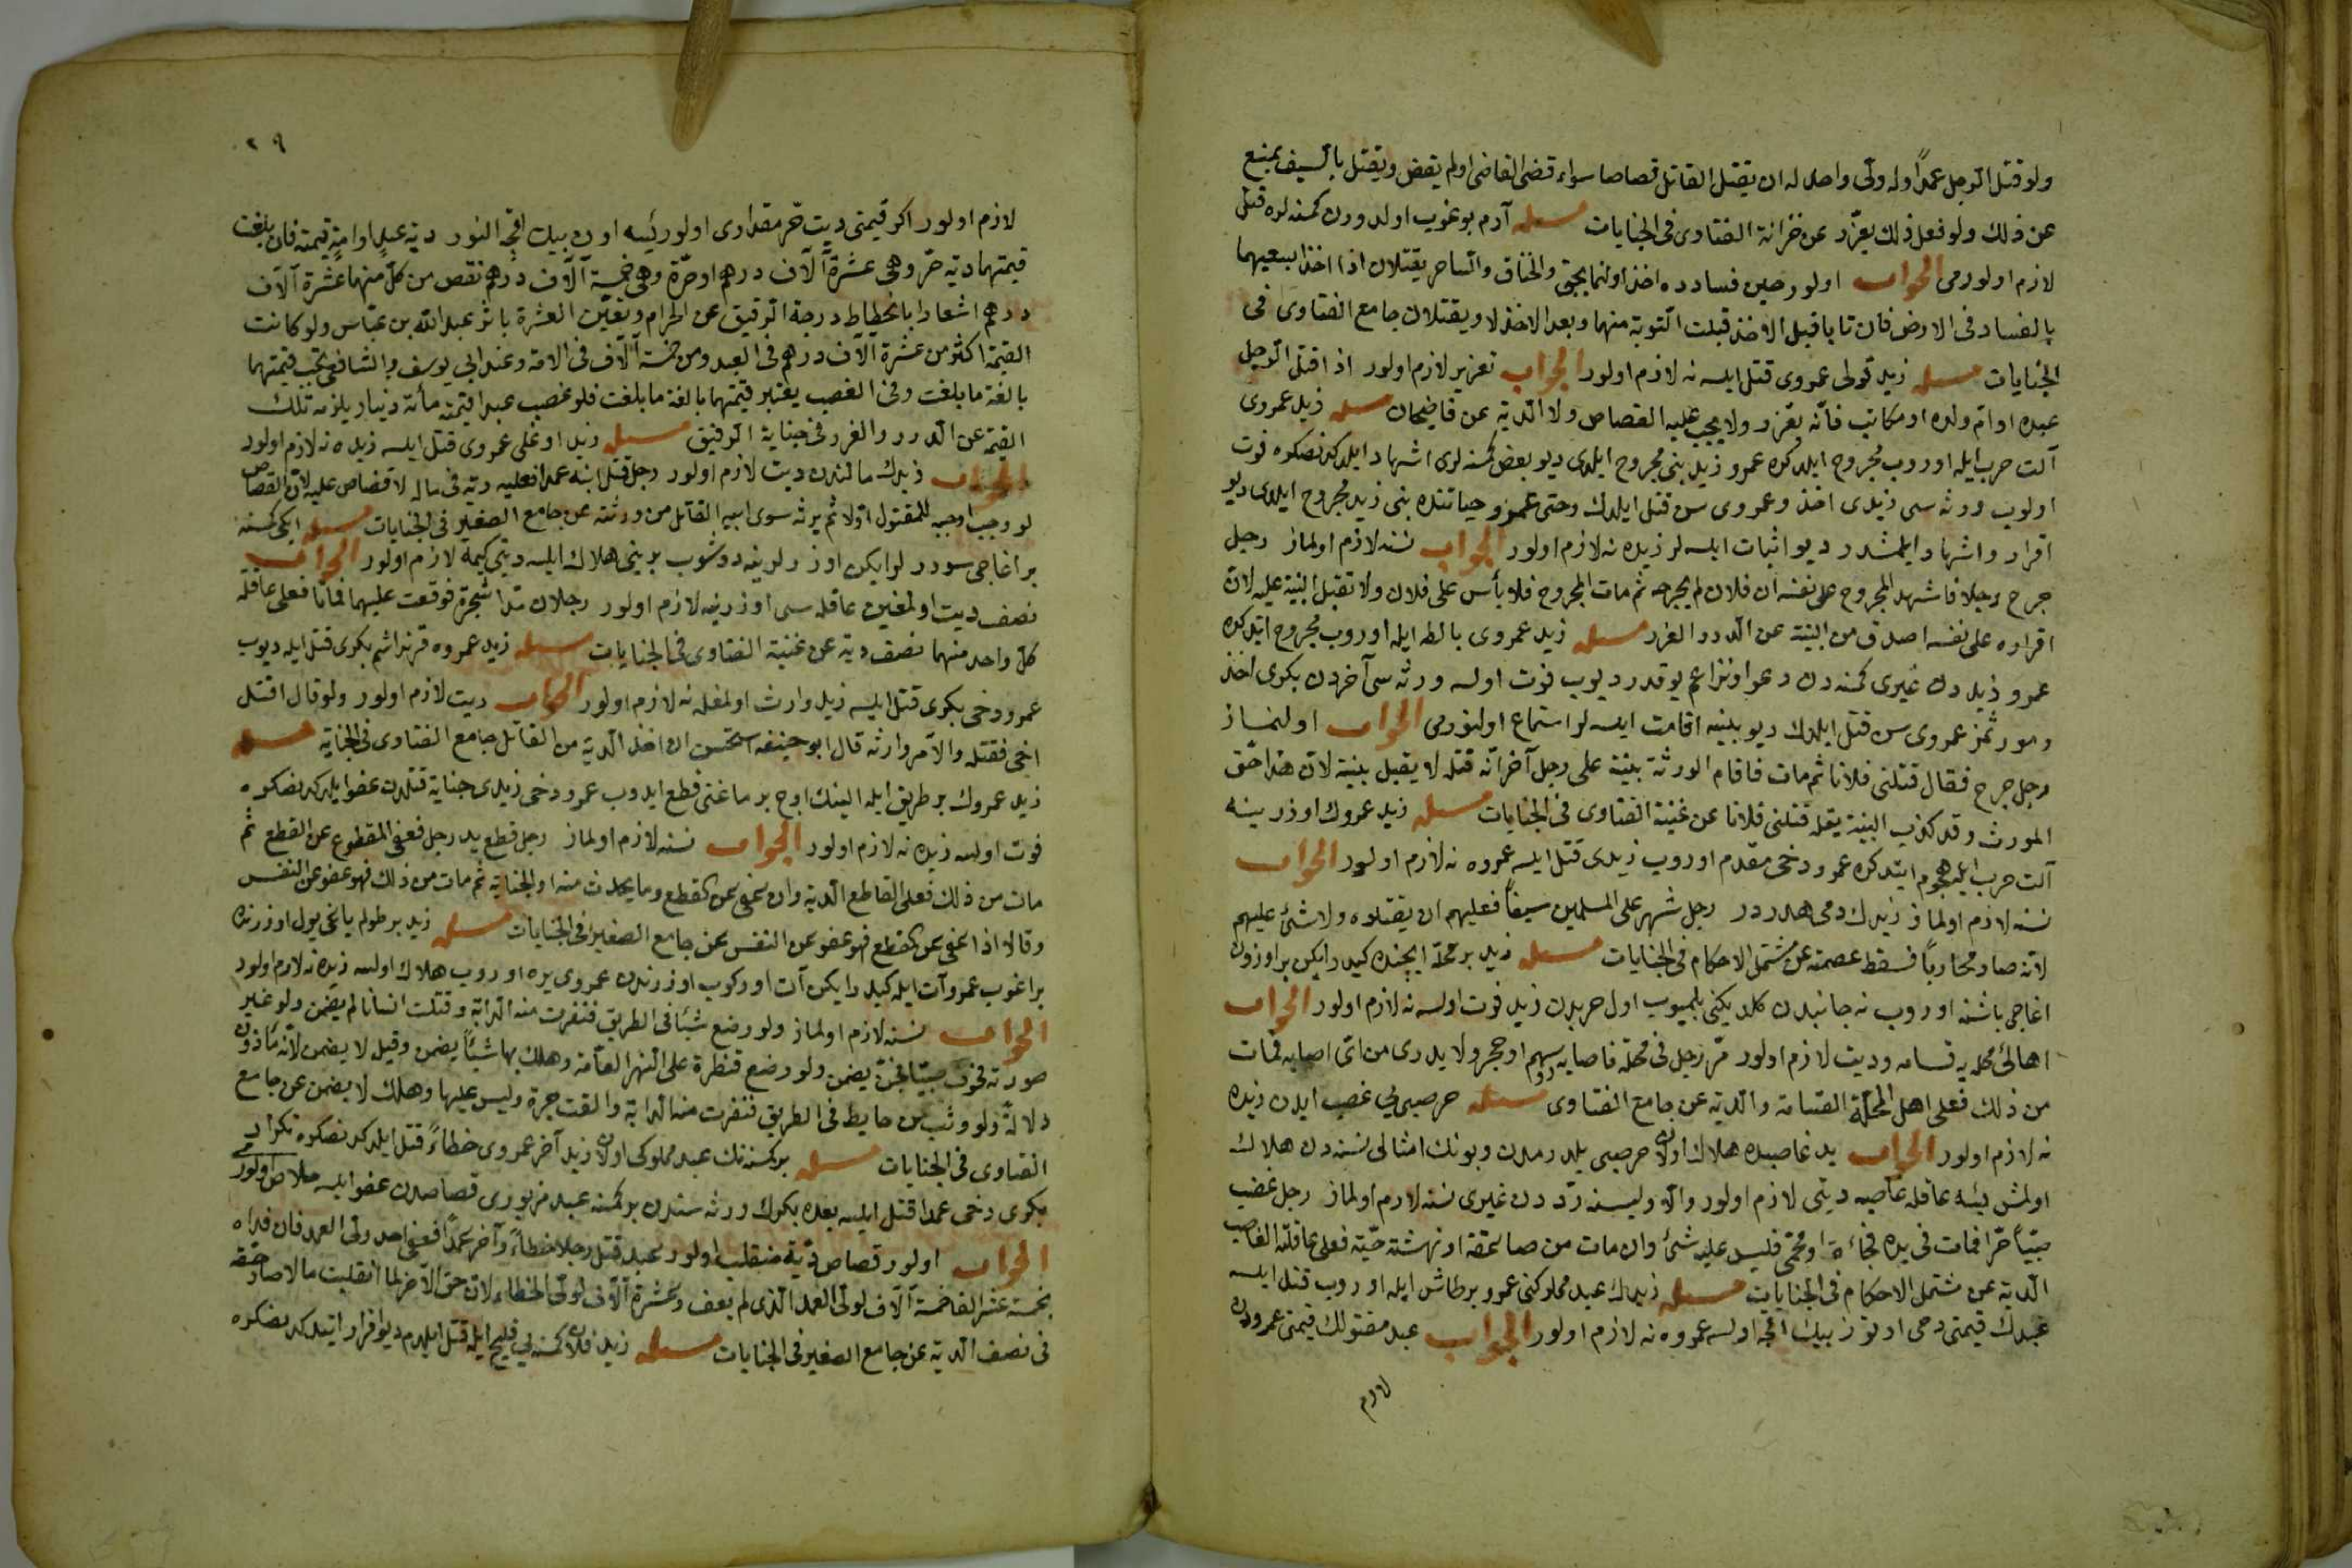 ولو قتل الرجل عمدًا وله ولى واحد له ان يقتل القاتل قصاصا سواء قضى القاضى اولم يقض ويقتل بالسيف يمنع
عن ذلك ولو فعل ذلك يعزّر عن خزانة الفتاوى فى الجنايات مسئله آدم بوغوب اولدورن كمسنه لره قتل
لازم اولورمى الجواب اولور حين فسادده اخذ اولنمايجق والخناق والساحر يقتلان اذا اخذا لسعيهما
بالفساد فى الارض فان تابا قبل الاخذ قبلت التوبة منهما وبعد الاخذ لا ويقتلان جامع الفتاوى فى
الجنايات مسئله زيد قولى عمروى قتل ايلسه نه لازم اولور الجواب تعزير لازم اولور اذا قتل الرجل
عبده او ام ولده او مكاتبه فانّه يعزر ولا يجب عليه القصاص ولا الدية عن قاضيخان مسئله زيد عمروى
آلت حرب ايله اوروب مجروح ايلدكده عمرو زيد بنى مجروح ايلدى ديو بعض كمسنه لرى اشهاد ايلدكدنصكره فوت
اولوب ورثه سى زيدى اخذ وعمروى سن قتل ايلدك وحتى عمرو حياتنده بنى زيد مجروح ايلدى ديو
اقرار واشهاد ايلمشدر ديو اثبات ايلسه لر زيده نه لازم اولور الجواب نسنه لازم اولماز رجل
جرح رجلا فاشهد المجروح على نفسه ان فلان لم يجرحه ثم مات المجروح فلا بأس على فلان ولا تقبل البينة عليه لان
اقراره على نفسه اصدق من البينة عن الدرر الغرر مسئله زيد عمروى بالطه ايله اوروب مجروح ايتدكده
عمرو زيددن غيرى كمسنه دن دعوا ونزاعم يوقدر ديوب فوت اولسه ورثه سى آخردن بكرى اخذ
ومورثمز عمروى سن قتل ايلدك ديو بينه اقامت ايلسه لر استماع اولنورمى الجواب اولنماز
رجل جرح فقال قتلنى فلانا ثم مات فاقام الورثة بينة على رجل آخر انّه قتله لا يقبل بينة لان هذا حقّ
المورث وقد كذب البينة بقوله قتلنى فلانا عن غنية الفتاوى فى الجنايات مسئله زيد عمروك اوزرينه
آلت حرب ايله هجوم ايتدكده عمرو دخى مقدم اوروب زيدى قتل ايلسه عمروه نه لازم اولور الجواب
نسنه لازم اولماز زيدك دمى هدردر رجل شهر على المسلمين سيفاً فعليهم ان يقتلوه ولا شئ عليهم
لانه صار محارباً فسقط عصمته عن مشتمل الاحكام فى الجنايات مسئله زيد بر محلّه ايچنده كيدرايكن بر اوزون
اغاجى باشنه اوروب نه جانبدن كلديكنى بلميوب اول ضربدن زيد فوت اولسه نه لازم اولور الجواب
اهالئ محله يه قسامه وديت لازم اولور مرّ رجل فى محلة فاصابه سهم او حجر ولا يدرى من اىّ اصابه فمات
من ذلك فعلى اهل المحلّة القسامة والدية عن جامع الفتاوى مسئله حر صبى يى غصب ايدن زيده
نه لازم اولور الجواب يد غاصبده هلاك اولان حر صبى يلدرمدن وبونك امثالى نسنه دن هلاك
اولمش ايسه عاقله غاصبه ديتى لازم اولور والا وليسنه رددن غيرى نسنه لازم اولماز رجل غصب
صبيّاً حرّا فمات فى يده فجاءة او بحمّى فليس عليه شئ وان مات من صاعقة او نهشته حيّة فعلى عاقلة الغاصب
الدية عن مشتمل الاحكام فى الجنايات مسئله زيدك عبد مملوكنى عمرو بر طاش ايله اوروب قتل ايلسه
عبدك قيمتى دخى اوتوز بيك اقچه اولسه عمروه نه لازم اولور الجواب عبد مقتولك قيمتى عمرودن
لازم
٢٩
لازم اولور اكر قيمتى ديت حر مقدارى اولورايسه اون بيك اقچه النور دية عبد او امة قيمته فان بلغت
قيمتهما دية حرّ وهى عشرة آلاف درهم او حرّة وهى خمسة آلاف درهم نقص من كلّ منهما عشرة آلاف
درهم اشعارا بانحطاط درجة الرقيق عن الحرام وتعيّن العشرة باثر عبد الله بن عبّاس ولو كانت
القيمة اكثر من عشرة آلاف درهم فى العبد ومن خمسة آلاف فى الامة وعند ابى يوسف والشافعى تجب قيمتهما
بالغة ما بلغت وفى الغصب يعتبر قيمتهما بالغة ما بلغت فلو غصب عبدا قيمته مأئة دينار يلزمه تلك
القيمة عن الدرر والغرر فى جناية الرقيق مسئله زيد اوغلى عمروى قتل ايلسه زيده نه لازم اولور
الجواب زيدك مالندن ديت لازم اولور رجل قتل ابنه عمدا فعليه دية فى ماله لا قصاص عليه لان القصاص
لو وجب اوجبه للمقتول اوّلا ثم يرثه سوى ابيه القاتل من ورثته عن جامع الصغير فى الجنايات مسئله ايكى كمسنه
بر اغاجى سوررلر ايكن اوزرلرينه دوشوب بريني هلاك ايلسه ديتى كيمه لازم اولور الجواب
نصف ديت اولمغين عاقله سى اوزرينه لازم اولور رجلان مدا شجرة فوقعت عليهما فماتا فعلى عاقلة
كلّ واحد منهما نصف دية عن غنية الفتاوى فى الجنايات مسئله زيد عمروه قرنداشم بكرى قتل ايله ديوب
عمرو دخى بكرى قتل ايلسه زيد وارث اولمغله نه لازم اولور الجواب ديت لازم اولور ولو قال اقتل
اخى فقتله والآمر وارثه قال ابو حنيفه استحسن ان اخذ الدية من القاتل جامع الفتاوى فى الجناية مسئله
زيد عمروك بر طريق ايله الينك اوچ برماغنى قطع ايدوب عمرو دخى زيدى جناية قتلدن عفو ايلدكدنصكره
فوت اولسه زيده نه لازم اولور الجواب نسنه لازم اولماز رجل قطع يد رجل فعفى المقطوع عن القطع ثم
مات من ذلك فعلى القاطع الدية وان عفى عن القطع وما يحدث منه او الجناية ثم مات من ذلك فهو عفو عن النفس
وقالا اذا عفى عن القطع فهو عفو عن النفس عن جامع الصغير فى الجنايات مسئله زيد بر طولم ياغى يول اوزرنده
براغوب عمرو آت ايله كيدرايكن آت اوركوب اوزرندن عمروى يره اوروب هلاك اولسه زيده نه لازم اولور
الجواب نسنه لازم اولماز ولو وضع شيئا فى الطريق فنفرت منه الدابة وقتلت انسانا لم يضمن ولو غير
صورته فخوف صبيّا فجنّ يضمن ولو وضع قنطرة على النهر العامّة وهلك بها شيئاً يضمن وقيل لا يضمن لانه مأذون
دلالةً ولو وثب من حايط فى الطريق فنفرت منه الدابة والقت حجرة وليس عليها وهلك لا يضمن عن جامع
الفتاوى فى الجنايات مسئله بر كمسنه نك عبد مملوكى اولان زيد آخر عمروى خطاءً قتل ايلدكدنصكره تكرار
بكرى دخى عمدا قتل ايلسه بعده بكرك ورثه سندن بر كمسنه عبد مزبورى قصاصدن عفو ايلسه خلاص اولورمى
الجواب اولور قصاص ديّة منقلب اولور عبد قتل رجلا خطاءً وآخر عمدًا فعفى احد ولى العمد فان فداه
بخمسة عشر الفا خمسة آلاف لولى العمد الذى لم يعف وعشرة آلاف لولى الخطاء لان حق الآخر لما انقلبت مالا صار حقّه
فى نصف الدية عن جامع الصغير فى الجنايات مسئله زيد فلان كمسنه يى قليج ايله قتل ايلدم ديو اقرار ايتدكدنصكره